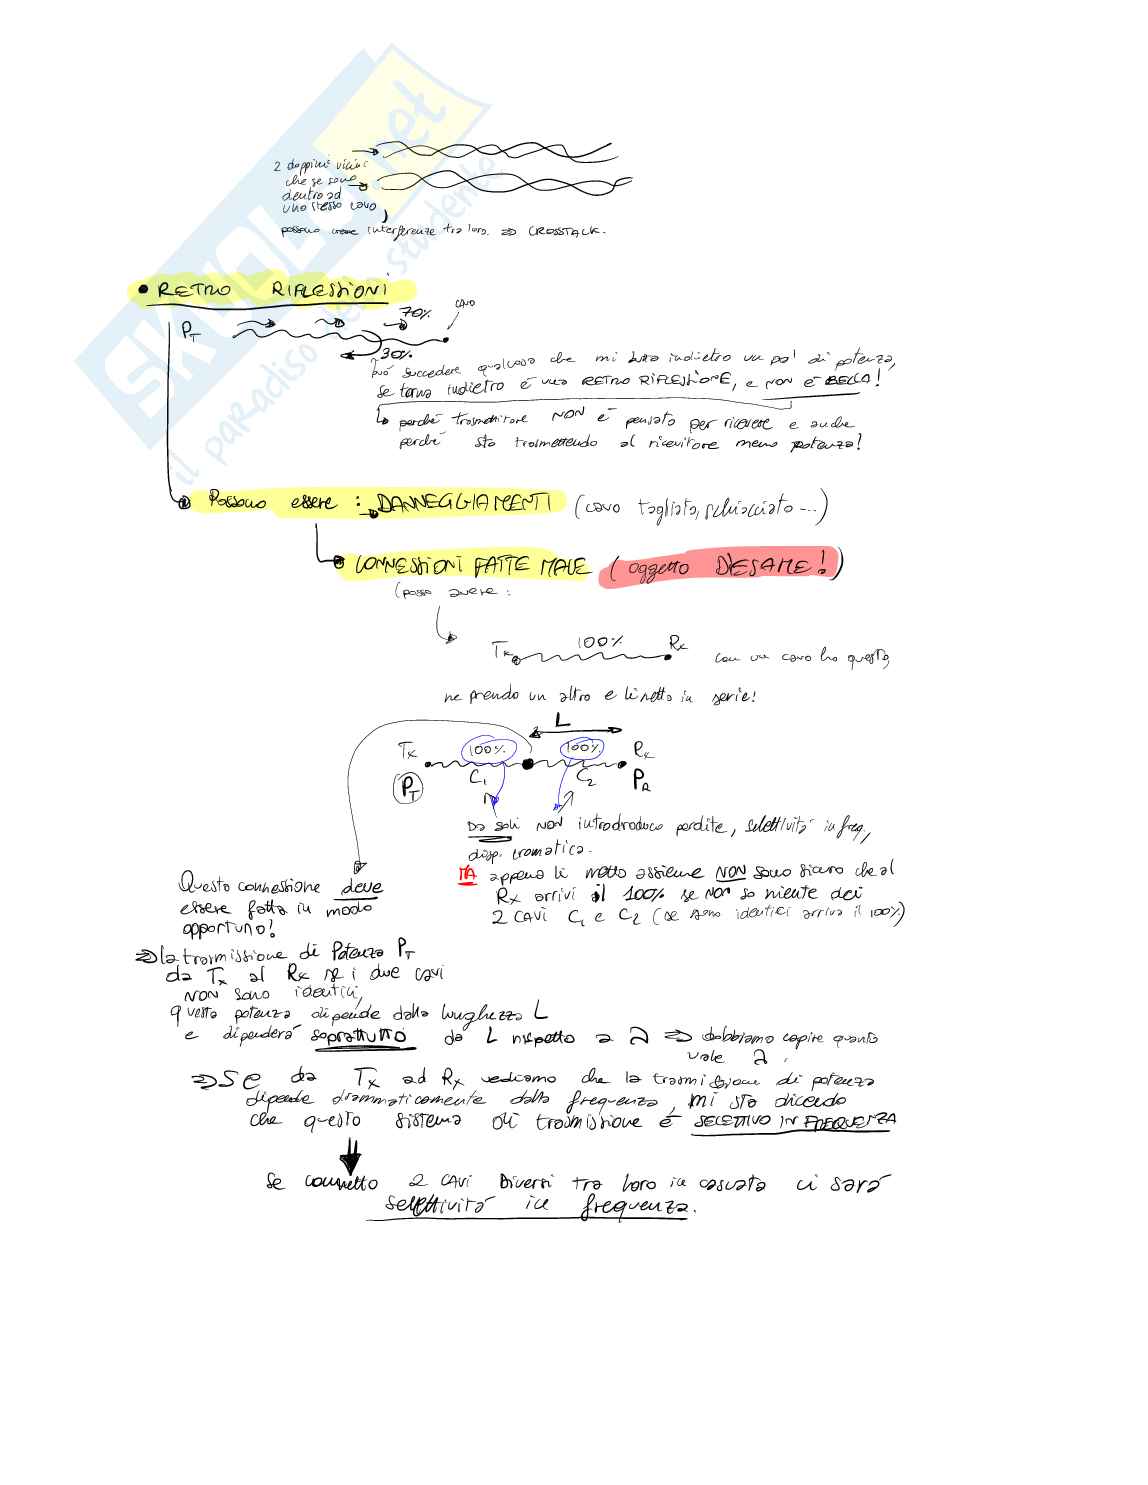 SKUOLA.net
il paradiso dello studente
2 doppini vicini
che se sono
dentro ad
uno stesso cavo
possono creare interferenze tra loro. => CROSSTALK.
• RETRO RIFLESSIONI
PT
70%
cavo
30%
Può succedere qualcosa che mi butta indietro un po' di potenza,
se torna indietro è una RETRO RIFLESSIONE, e NON È BELLA!
perché trasmettitore NON è pensato per ricevere e anche
perché sto trasmettendo al ricevitore meno potenza!
Possono essere : DANNEGGIAMENTI (cavo tagliato, schiacciato ...)
CONNESSIONI FATTE MALE (oggetto D'ESAME!)
(posso avere :
Tx 100% Rx con un cavo ho questo,
ne prendo un altro e li metto in serie!
L
Tx 100% 100% Rx
PT C1 C2 PR
Da soli NON introdroduco perdite, selettività in freq,
disp. cromatica.
MA appena li metto assieme NON sono sicuro che al
Rx arrivi il 100% se NON so niente dei
2 CAVI C1 e C2 (se sono identici arriva il 100%)
Questa connessione deve
essere fatta in modo
opportuno!
=> la trasmissione di Potenza PT
da Tx al Rx se i due cavi
NON sono identici,
questa potenza dipende dalla lunghezza L
e dipenderà soprattutto da L rispetto a λ => dobbiamo capire quanto
vale λ.
=> Se da Tx ad Rx vediamo che la trasmissione di potenza
dipende drammaticamente dalla frequenza, mi sta dicendo
che questo sistema di trasmissione è SELETTIVO IN FREQUENZA
Se connetto 2 CAVI Diversi tra loro in cascata ci sarà
selettività in frequenza.